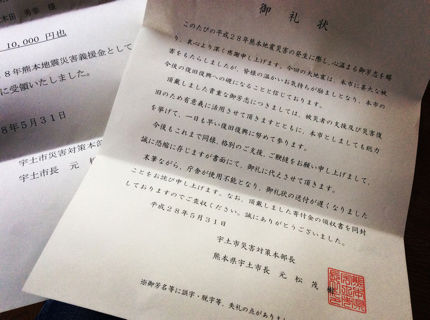 木田 秀幸 様
10,000 円也
8年熊本地震災害義援金として
に受領いたしました。
8年5月31日
宇土市災害対策本部
宇土市長 元 松
御 礼 状
このたびの平成28年熊本地震災害の発生に際し、心温まる御芳志を賜
り、衷心より深く感謝申し上げます。今回の大地震は、本市に甚大な被
害をもたらしましたが、皆様の温かいお気持ちが励ましとなり、本市の
今後の復旧復興への礎になることと信じております。
頂戴しました貴重な御芳志につきましては、被災者の支援及び災害復
旧のため有意義に活用させて頂きますとともに、本市としましても総力
を挙げて、一日も早い復旧復興に努めて参ります。
今後もこれまで同様、格別のご支援、ご鞭撻をお願い申し上げまして、
誠に恐縮に存じますが書面にて、御礼に代えさせて頂きます。
末筆ながら、庁舎が使用不能となり、御礼状の送付が遅くなりました
ことをお詫び申し上げます。なお、頂戴しました寄付金の領収書を同封
しておりますのでご査収ください。誠にありがとうございました。
平成28年5月31日
宇土市災害対策本部長
熊本県宇土市長 元 松 茂 樹
※御芳名等に誤字・脱字等、失礼の点がありまし